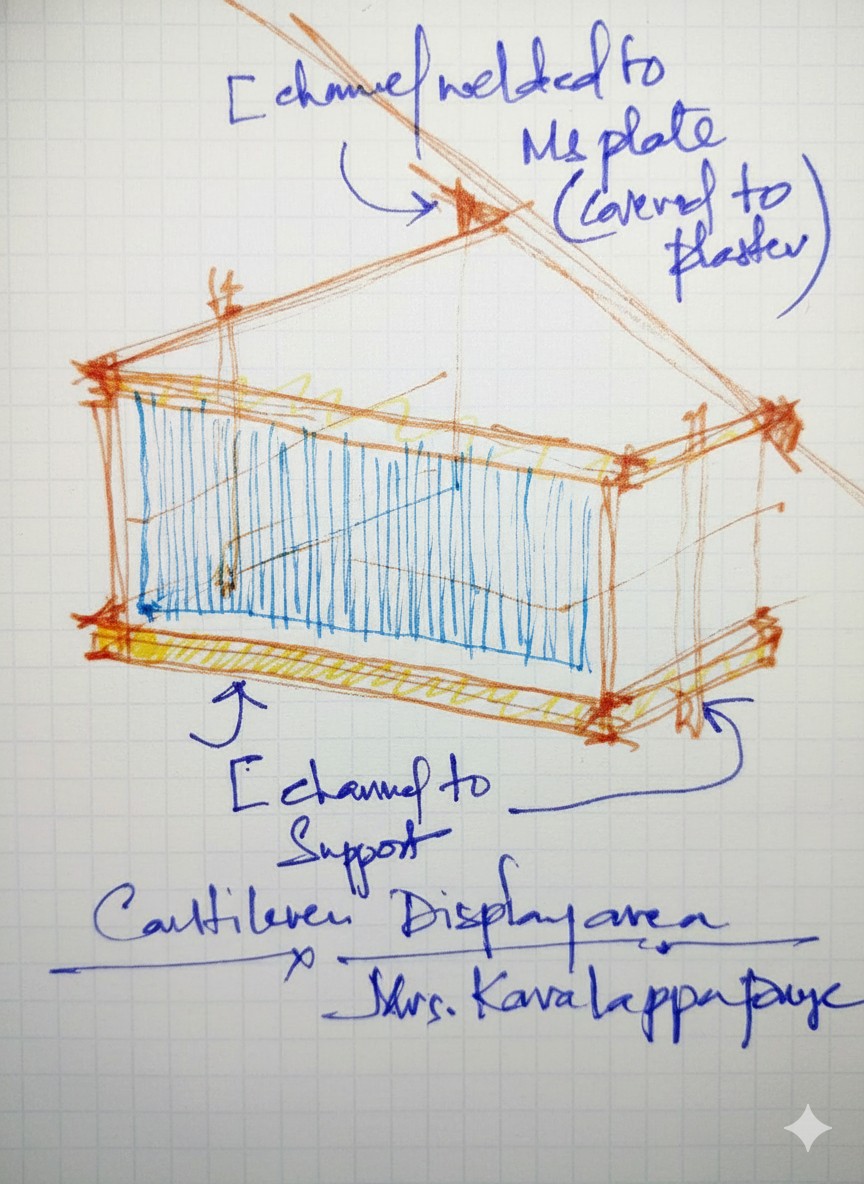 [ channel welded to
Ms plate
(covered to
plaster)
[ channel to
Support
Cantilever Display area
Mrs. Kavalappa